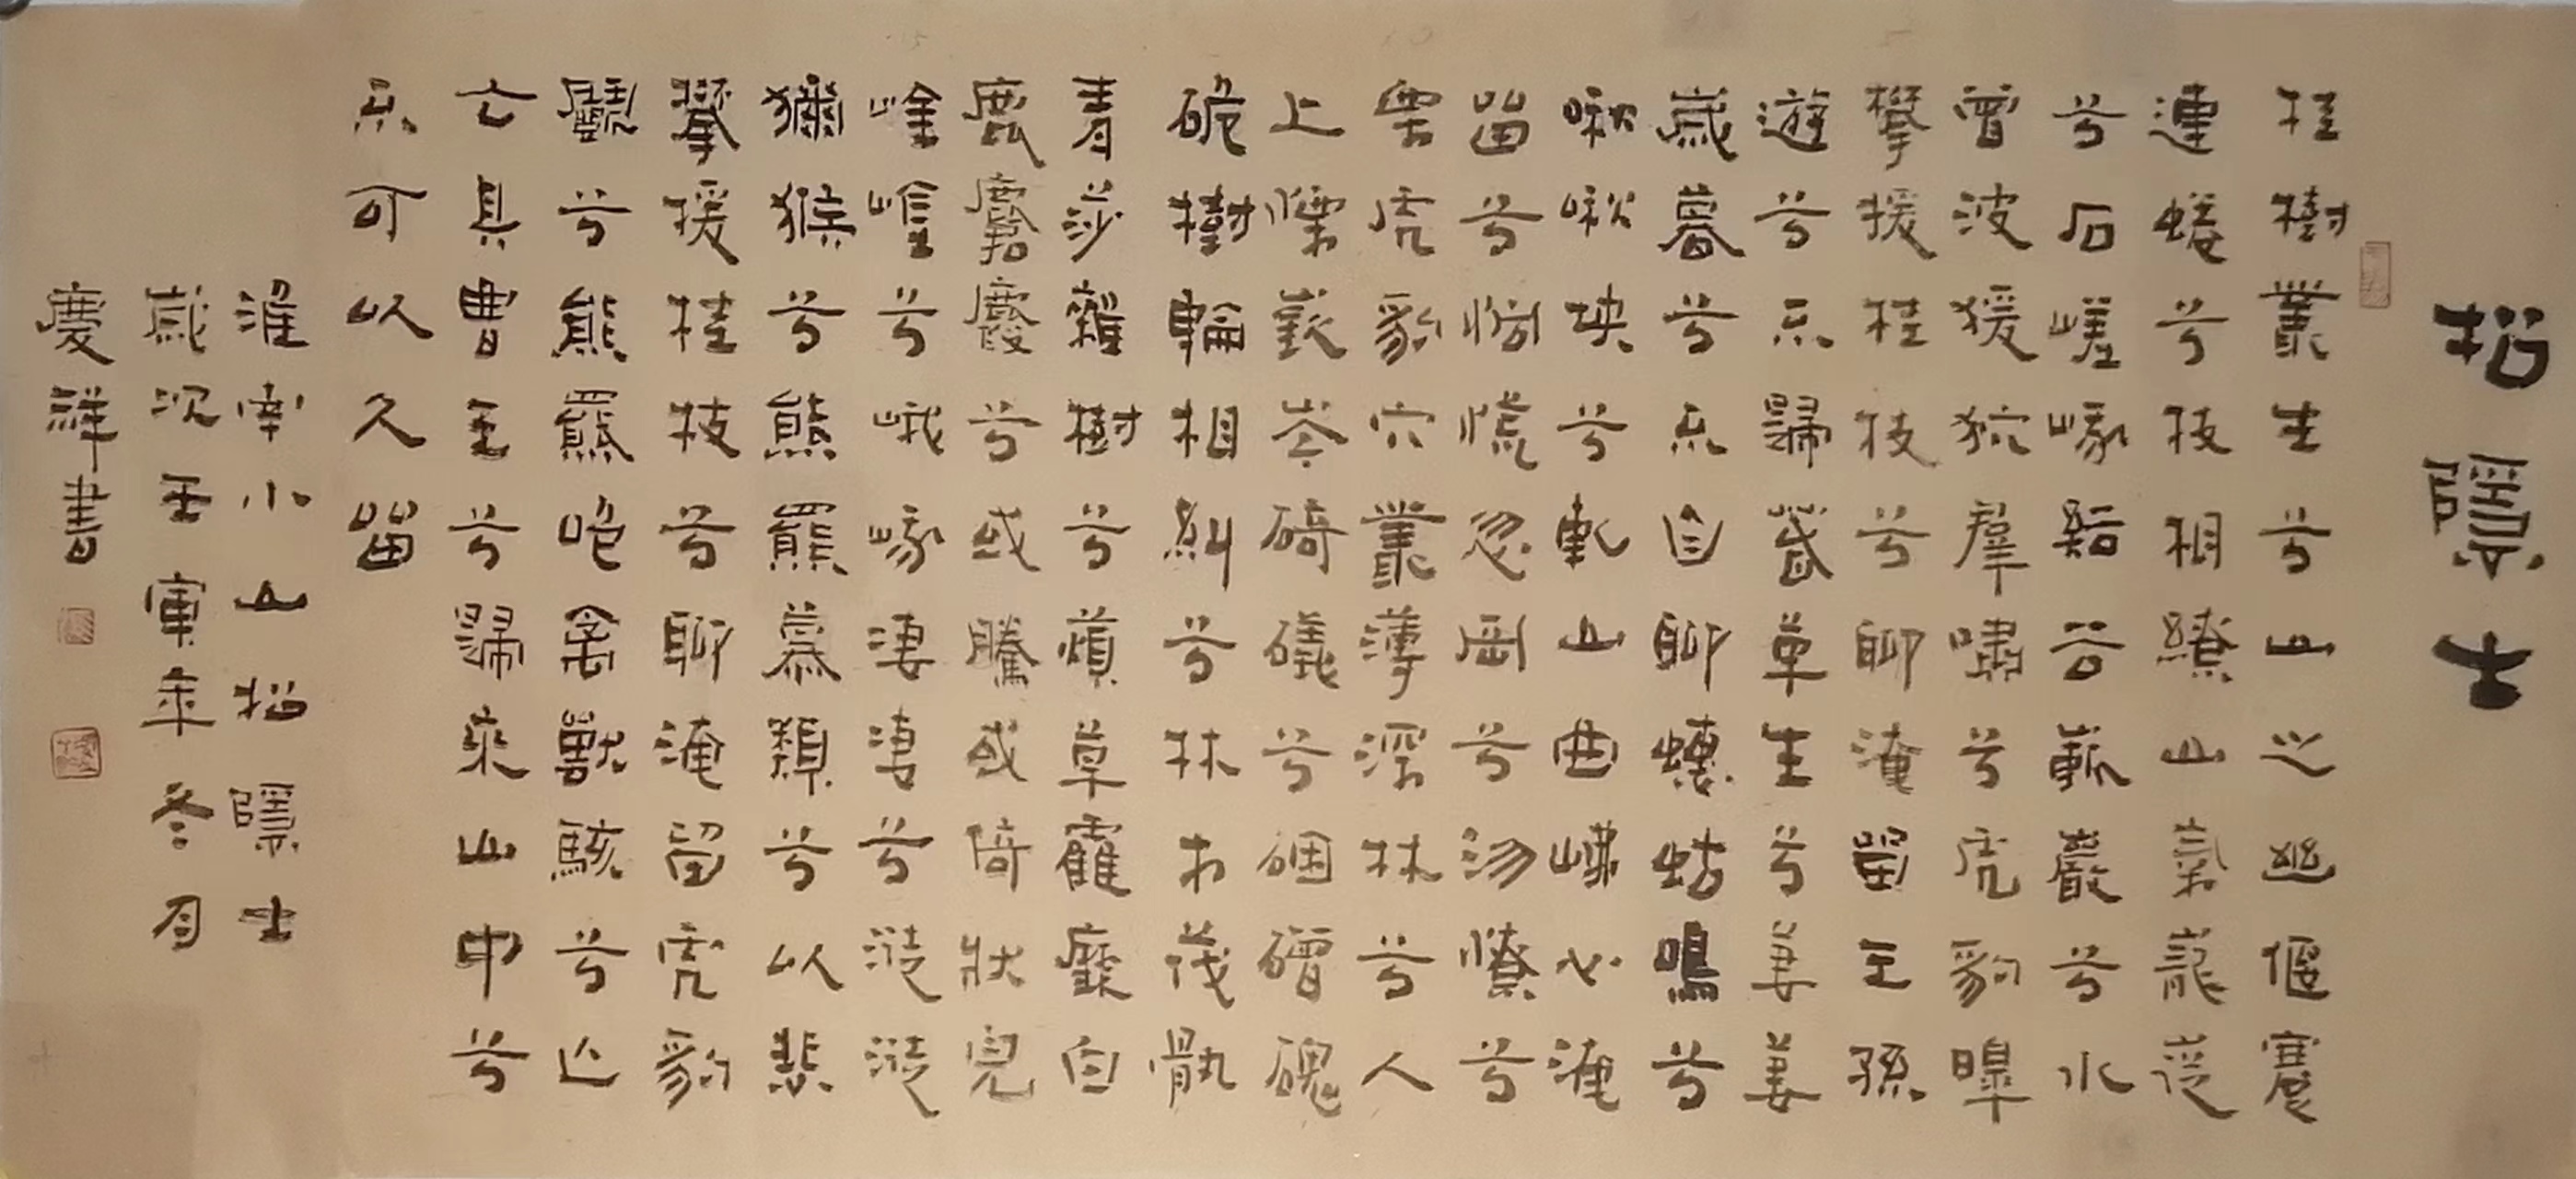 招隱士
桂樹叢生兮山之幽偃蹇
連蜷兮枝相繚山氣巃嵸
兮石嵯峨谿谷嶄巖兮水
曾波猨狖羣嘯兮虎豹嗥
攀援桂枝兮聊淹留王孫
遊兮不歸春草生兮萋萋
歲暮兮不自聊蟪蛄鳴兮
啾啾坱兮軋山曲岪心淹
留兮恫慌忽罔兮沕憭兮
栗虎豹穴叢薄深林兮人
上慄嶔岑碕礒兮碅磳磈
硊樹輪相糾兮林木茷骫
青莎雜樹兮薠草靃靡白
鹿麏麚兮或騰或倚狀皃
崟崟兮峨峨淒淒兮漇漇
獼猴兮熊羆慕類兮以悲
攀援桂枝兮聊淹留虎豹
鬬兮熊羆咆禽獸駭兮亡
亡其曹王兮歸來山中兮
不可以久留
淮南小山招隱士
歲次壬寅年冬月
慶祥書